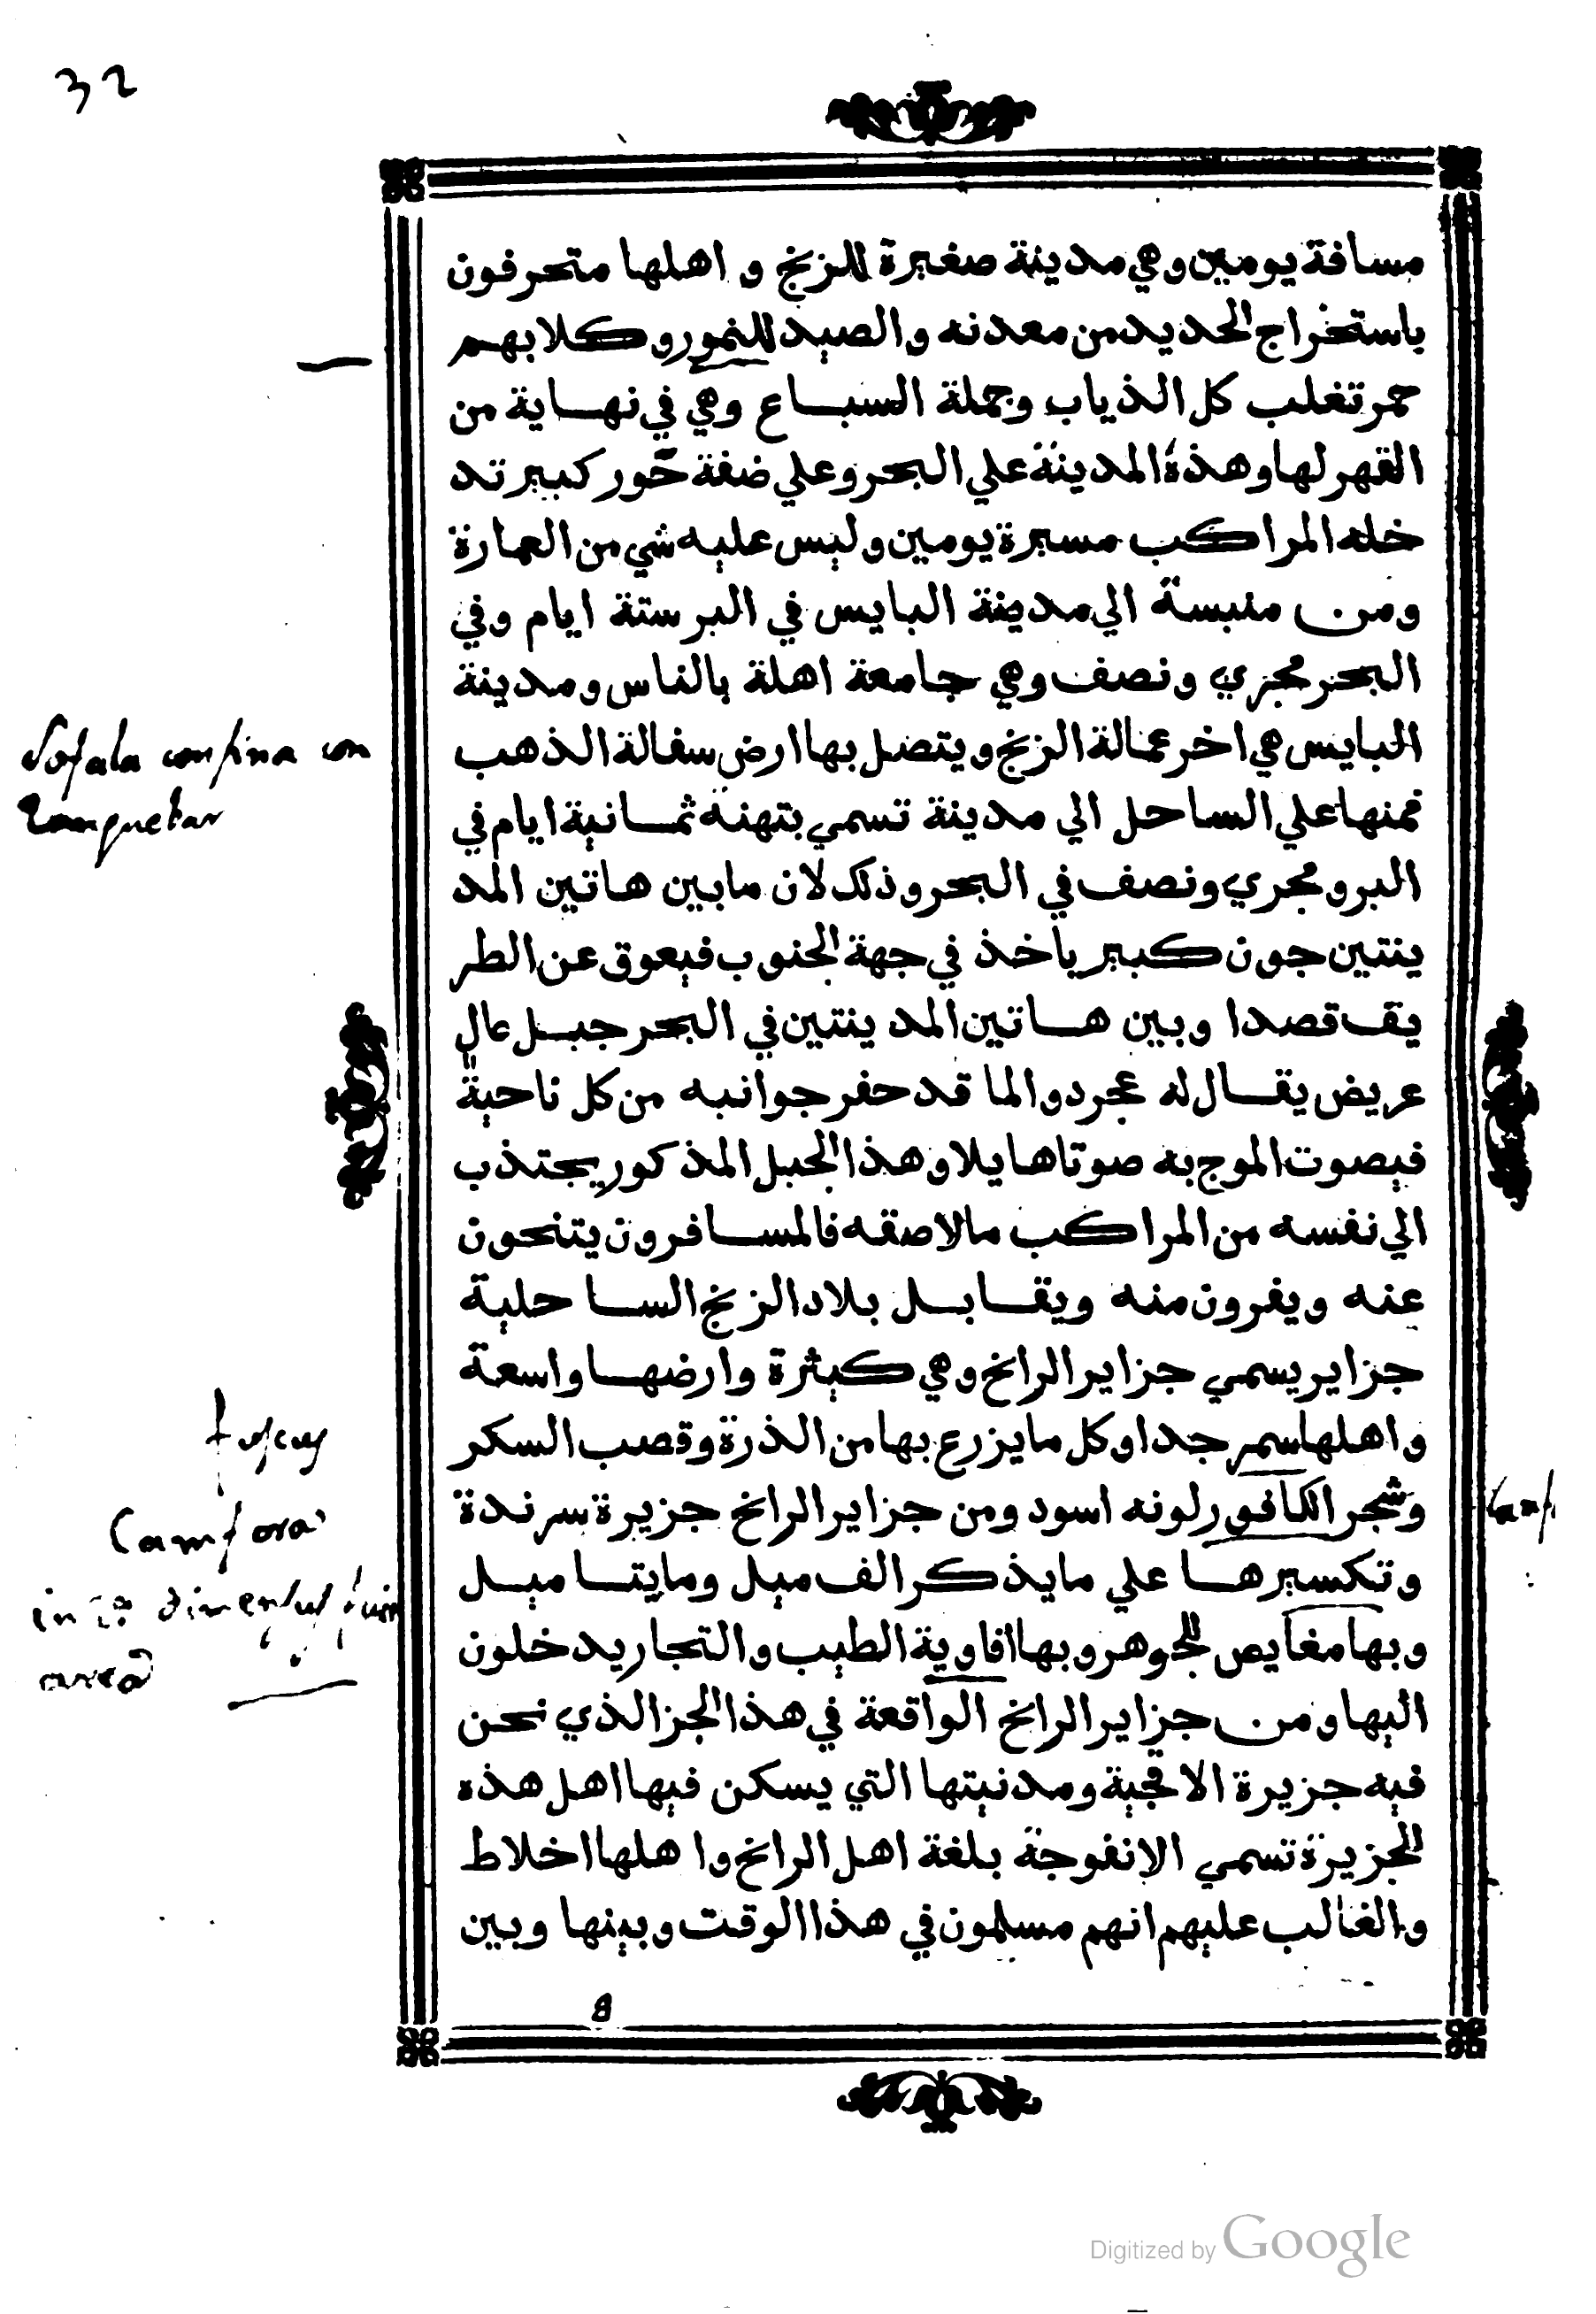 32
مسافة يومين وهي مدينة صغيرة للزنج و اهلها متحرفون
باستخراج الحديد من معدنه والصيد للنمور وكلابهم
حمر تغلب كل الذياب وجملة السباع وهي في نهاية من
القهر لها وهذه المدينة علي البحر وعلي ضفة خور كبير تد
خله المراكب مسيرة يومين وليس عليه شي من العمارة
ومن منبسة الي مدينة البايس في البر ستة ايام وفي
البحر مجري ونصف وهي جامعة اهلة بالناس ومدينة
البايس هي اخر عمالة الزنج ويتصل بها ارض سفالة الذهب
فمنها علي الساحل الي مدينة تسمي بتهنة ثمانية ايام في
البر ومجري ونصف في البحر وذلك لان مابين هاتين المد
ينتين جون كبير ياخذ في جهة الجنوب فيعوق عن الطر
يق قصدا وبين هاتين المدينتين في البحر جبل عال
عريض يقال له عجرد والما قد حفر جوانبه من كل ناحية
فيصوت الموج به صوتا هايلا وهذا الجبل المذكور يجتذب
الي نفسه من المراكب مالاصقه فالمسافرون يتنحون
عنه ويفرون منه ويقابل بلاد الزنج الساحلية
جزاير يسمي جزاير الرانج وهي كثيرة وارضها واسعة
واهلها سمر جدا وكل مايزرع بها من الذرة وقصب السكر
وشجر الكافور لونه اسود ومن جزاير الرانج جزيرة سرندة
وتكسيرها علي مايذكر الف ميل ومايتا ميل
وبها مغايص للجوهر وبها افاوية الطيب والتجار يدخلون
اليها ومن جزاير الرانج الواقعة في هذا الجز الذي نحن
فيه جزيرة الاقجية ومدنيتها التي يسكن فيها اهل هذه
الجزيرة تسمي الانفوجة بلغة اهل الرانج واهلها اخلاط
والغالب عليهم انهم مسلمون في هذا الوقت وبينها وبين
8
Sofala confina con
Zanguebar
fuscus
Camfora
area
Digitized by Google